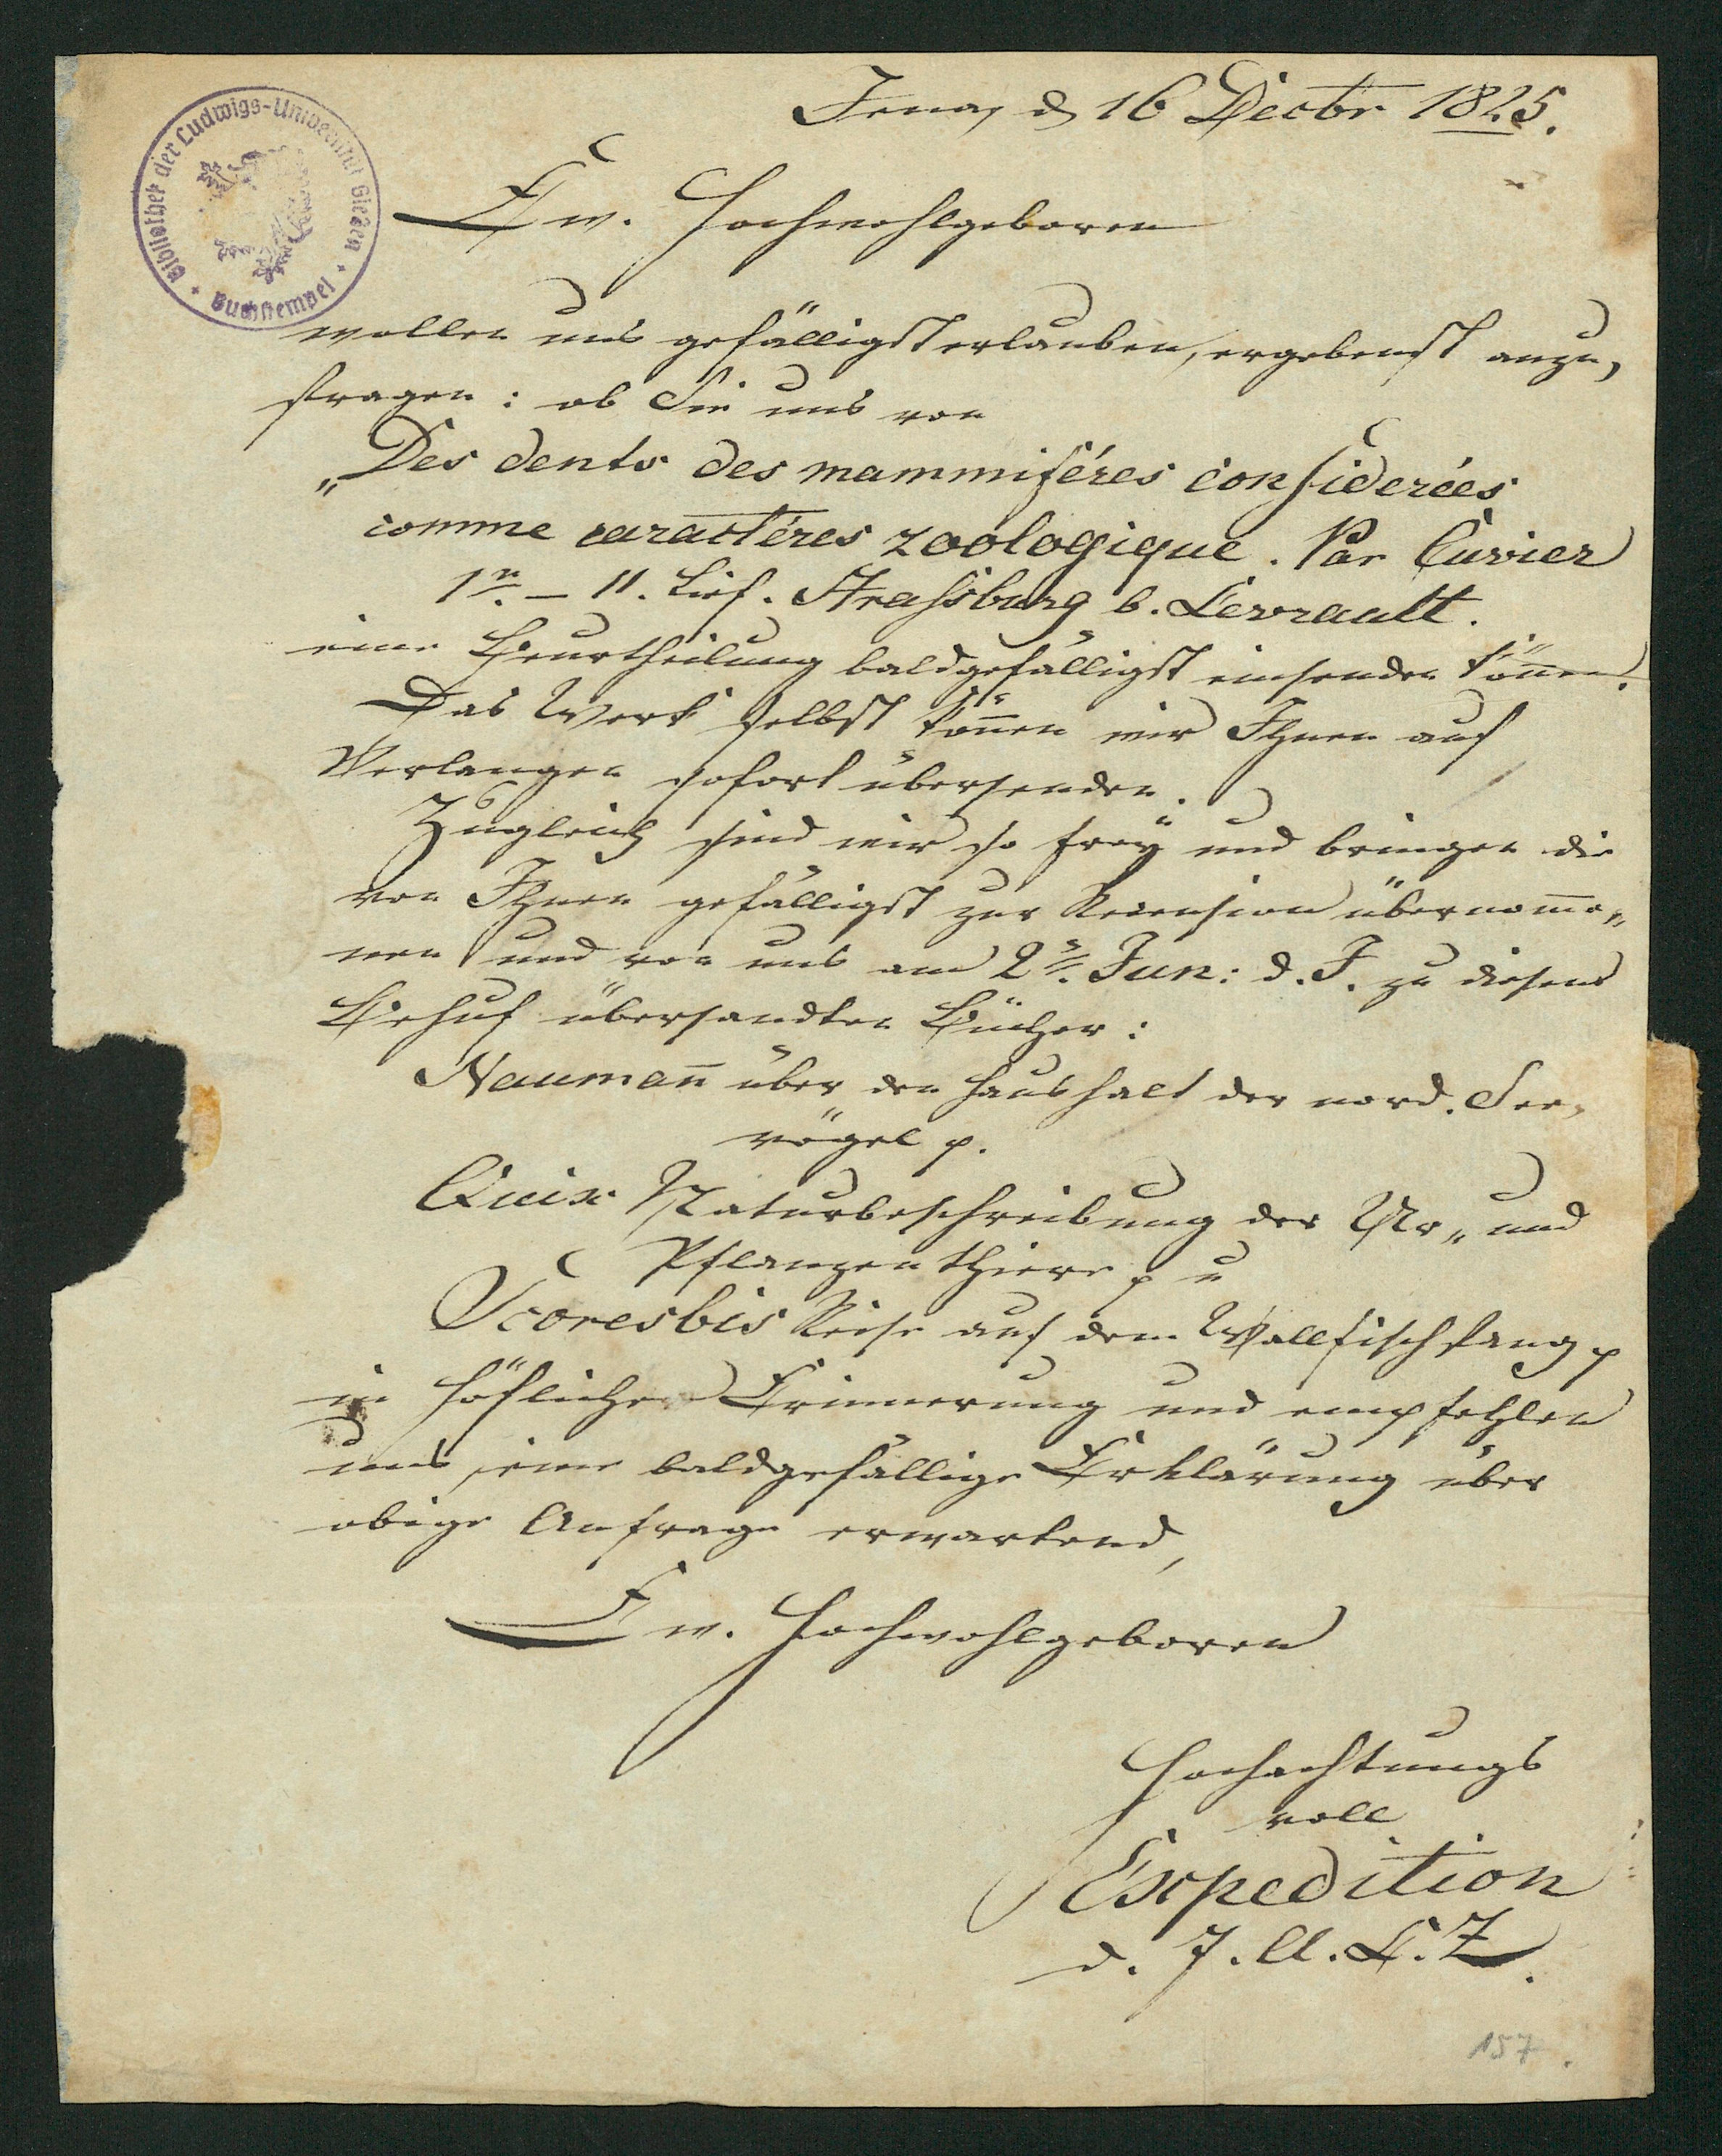 Bibliothek der Ludwigs-Universität Gießen
Buchstempel
Jena, d 16 Decbr 1825.
Ew. Hochwohlgeboren
wollen uns gefälligst erlauben, ergebenst anzu,
fragen: ob Sie uns von
„Des dents des mammiféres considerées
comme caractéres zoologique. Par Cuvier
1r. – 11. Lief. Strassburg b. Levrault.
eine Beurtheilung baldgefälligst einsenden köñen.
Das Werk selbst köñen wir Ihnen auf
Verlangen sofort übersenden.
Zugleich sind wir so frey und bringen die
von Ihnen gefälligst zur Recension übernom̄e„
nen und von uns am 2n. Jun: d. J. zu diesem
Behuf übersandten Bücher:
Naumañ über den Haushalt der nord. See,
vögel p.
Quix Naturbeschreibung der Ur„ und
Pflanzenthiere p u
Scoresbis Reise auf dem Wallfischfang p
in höfliche Erinnerung und empfehlen
uns, eine baldgefällige Erklärung über
obige Anfrage erwartend,
Ew. Hochwohlgeboren
Hochachtungs
voll
Expedition
d. J. A. L. Z.
157.